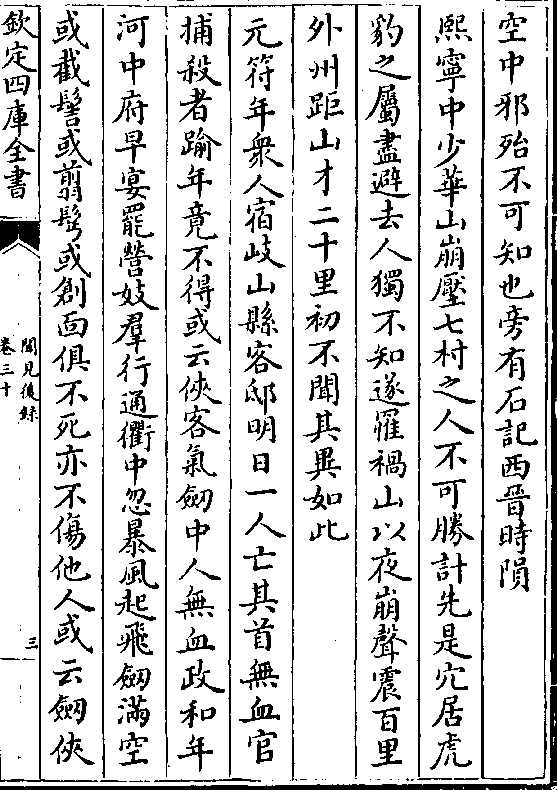 空中邪殆不可知也旁有石記西晉時隕
熈寧中少華山崩壓七村之人不可勝計先是穴居虎
豹之屬盡避去人獨不知遂罹禍山以夜崩聲震百里
外州距山才二十里初不聞其異如此
元符年衆人宿岐山縣客邸明日一人亡其首無血官
捕殺者踰年竟不得或云俠客氣劒中人無血政和年
河中府早宴罷營妓羣行通衢中忽暴風起飛劒滿空
或截髻或翦髩或創面俱不死亦不傷他人或云劒俠
欽定四庫全書
聞見後録
卷三十
三